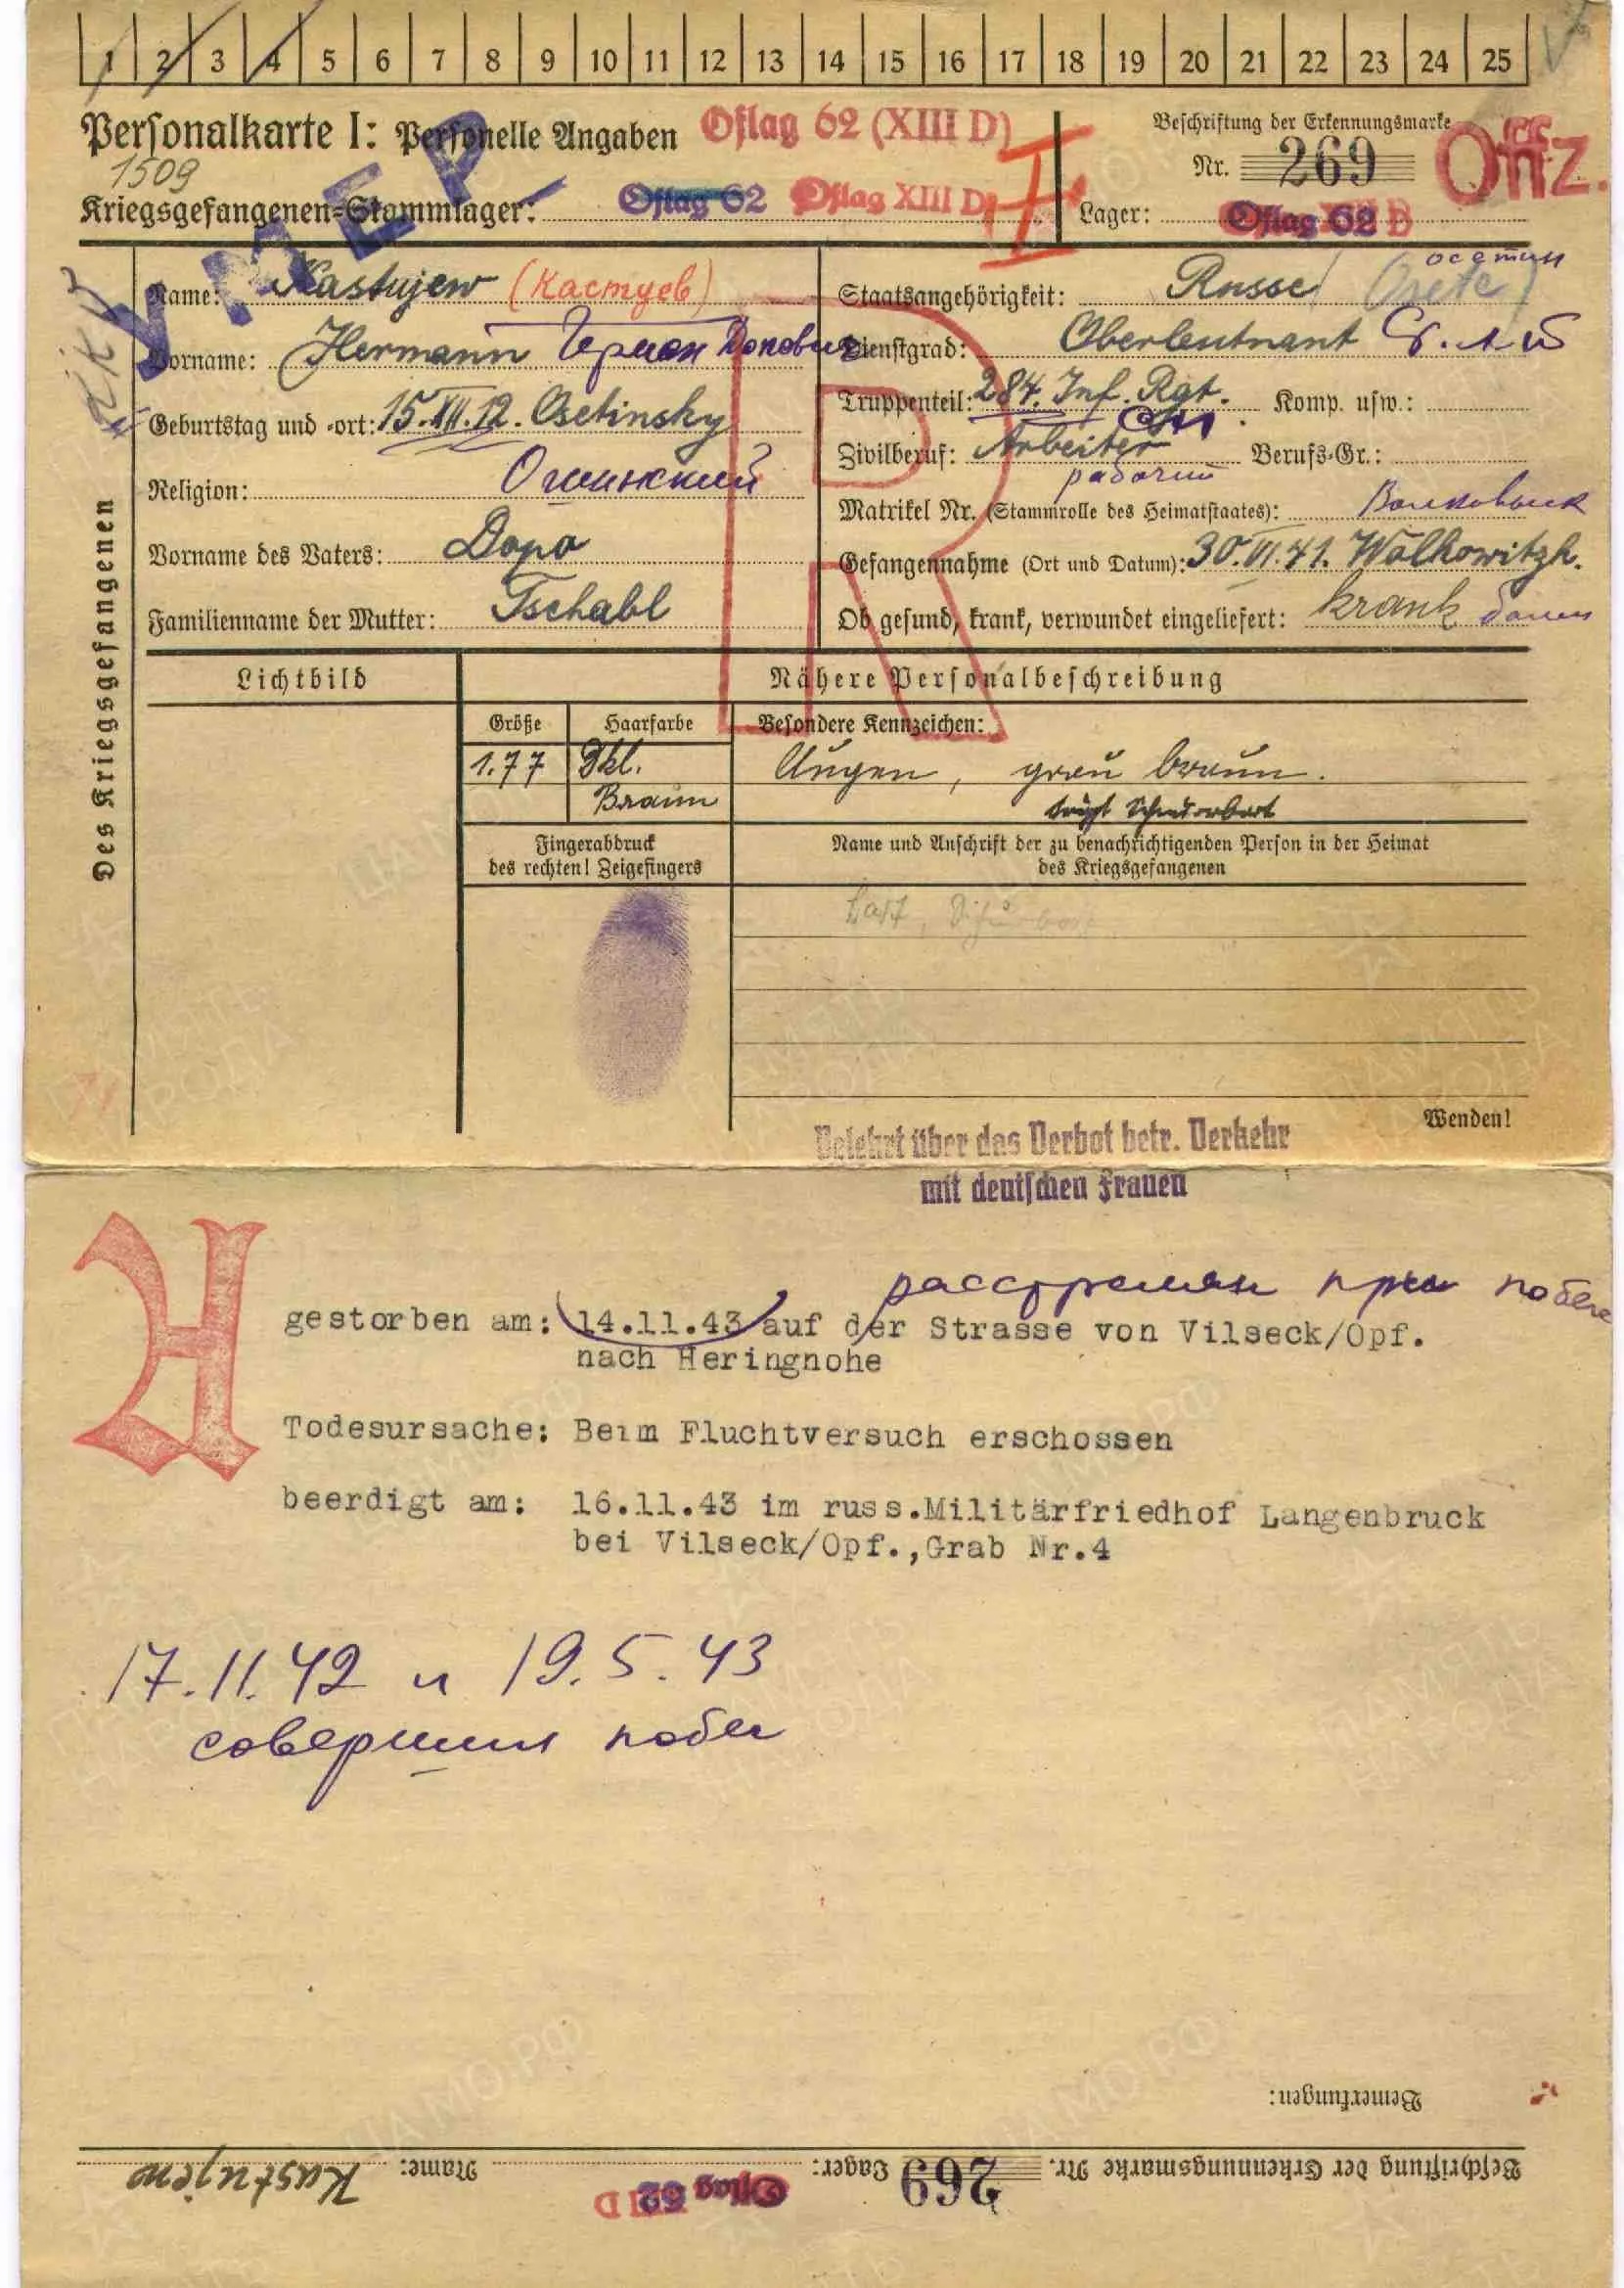 1 2 3 4 5 6 7 8 9 10 11 12 13 14 15 16 17 18 19 20 21 22 23 24 25
Personalkarte I: Personelle Angaben
Oflag 62 (XIII D)
II
Beschriftung der Erkennungsmarke
Nr. 269
Offz.
1509
Kriegsgefangenen-Stammlager: Oflag 62 Oflag XIII D
Lager: Oflag 62
УМЕР
Des Kriegsgefangenen
Name: Kastujew (Кастуев)
Vorname: Hermann Герман Допович
Geburtstag und -ort: 15.XII.12. Osetinsky
Осетинский
Religion:
Vorname des Vaters: Dopo
Familienname der Mutter: Tschabl
осетин
Staatsangehörigkeit: Russe (Osete)
Dienstgrad: Oberleutnant Ст. л-т
Truppenteil: 284. Inf. Rgt. Komp. usw.:
сп
Zivilberuf: Arbeiter Berufs-Gr.:
рабочий
Matrikel Nr. (Stammrolle des Heimatstaates):
Волковыск
Gefangennahme (Ort und Datum): 30.VI.41. Wolkowitzk.
Ob gesund, krank, verwundet eingeliefert: krank болен
R
Lichtbild
Nähere Personalbeschreibung
Größe Haarfarbe Besondere Kennzeichen:
1.77 Dkl. Augen, grau braun.
Braun trägt Schnurrbart
Fingerabdruck
des rechten! Zeigefingers
Name und Anschrift der zu benachrichtigenden Person in der Heimat
des Kriegsgefangenen
Wenden!
Belehrt über das Verbot betr. Verkehr
mit deutschen Frauen
расстрелян при побеге
gestorben am: 14.11.43 auf der Strasse von Vilseck/Opf.
nach Heringnohe
Todesursache: Beim Fluchtversuch erschossen
beerdigt am: 16.11.43 im russ.Militärfriedhof Langenbruck
bei Vilseck/Opf.,Grab Nr.4
17.11.42 и 19.5.43
совершил побег
Bemerkungen:
Beschriftung der Erkennungsmarke Nr. 269 Lager: Oflag 62 Name: Kastujew
ПАМЯТЬ НАРОДА
ЦАМО.РФ